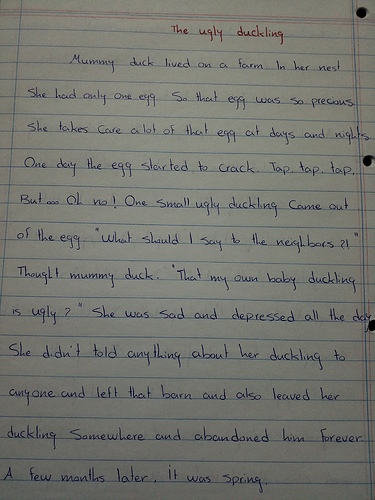 The ugly duckling
Mummy duck lived on a farm. In her nest
She had only one egg So that egg was so precious
She takes care alot of that egg at days and nights
One day the egg started to crack. Tap, tap, tap.
But... Oh no! One small ugly duckling came out
of the egg. "What should I say to the neighbors ?!"
Thought mummy duck. "That my own baby duckling
is ugly ?" She was sad and depressed all the day
She didn't told anything about her duckling to
anyone and left that barn and also leaved her
duckling somewhere and abandoned him forever
A few months later, it was spring.